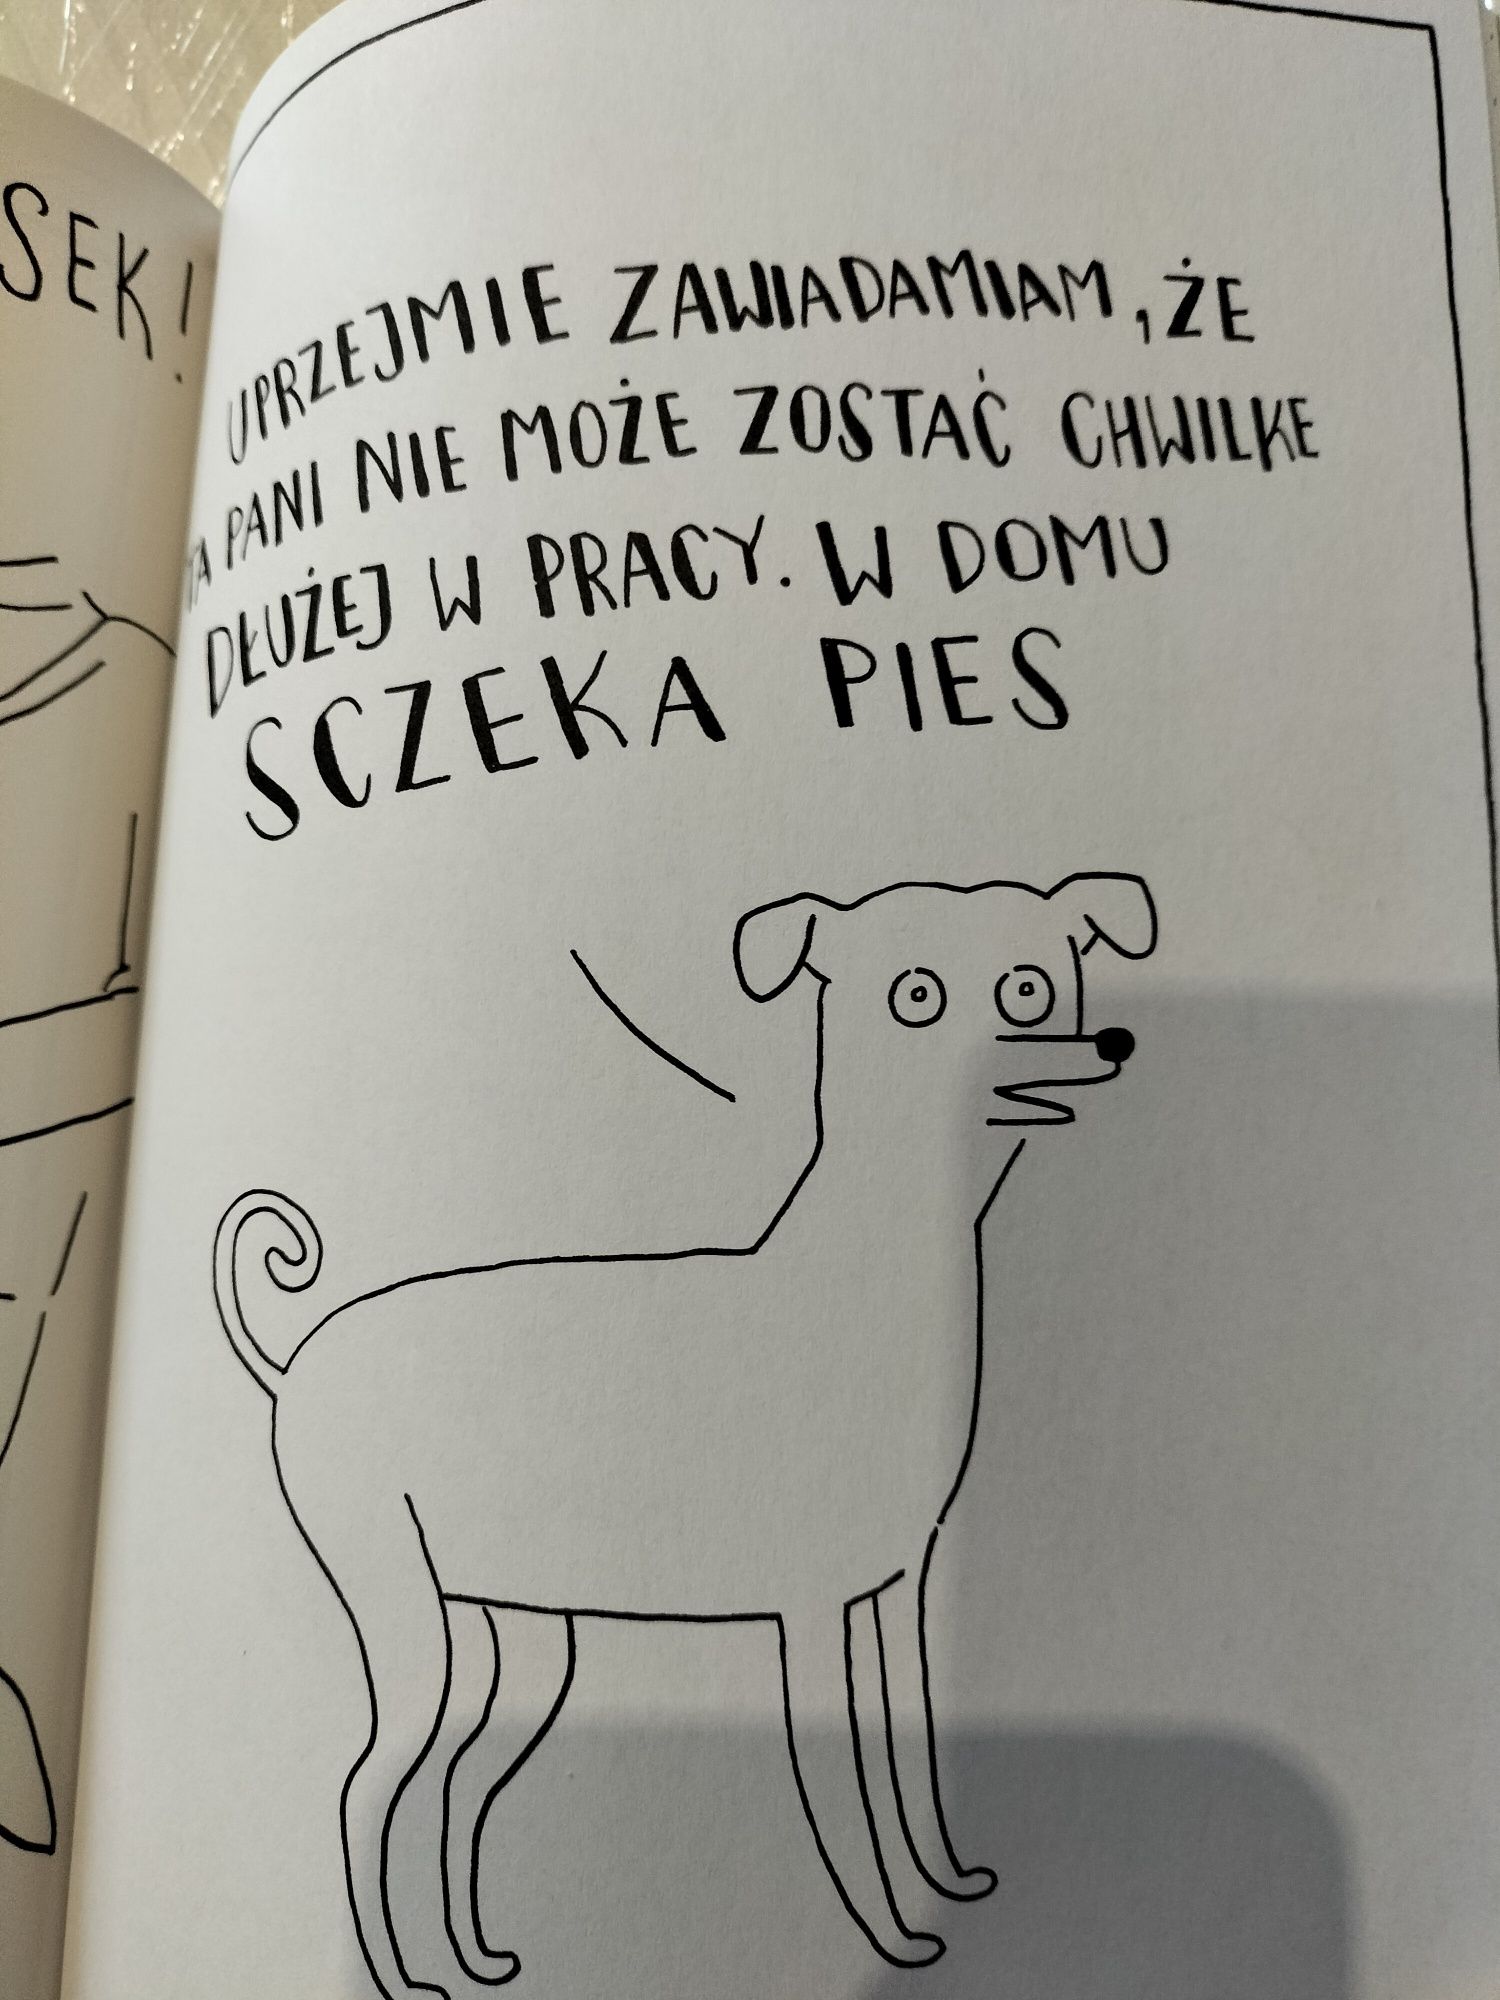 SEK!
UPRZEJMIE ZAWIADAMIAM, ŻE
TA PANI NIE MOŻE ZOSTAĆ CHWILKE
DŁUŻEJ W PRACY. W DOMU
SCZEKA PIES